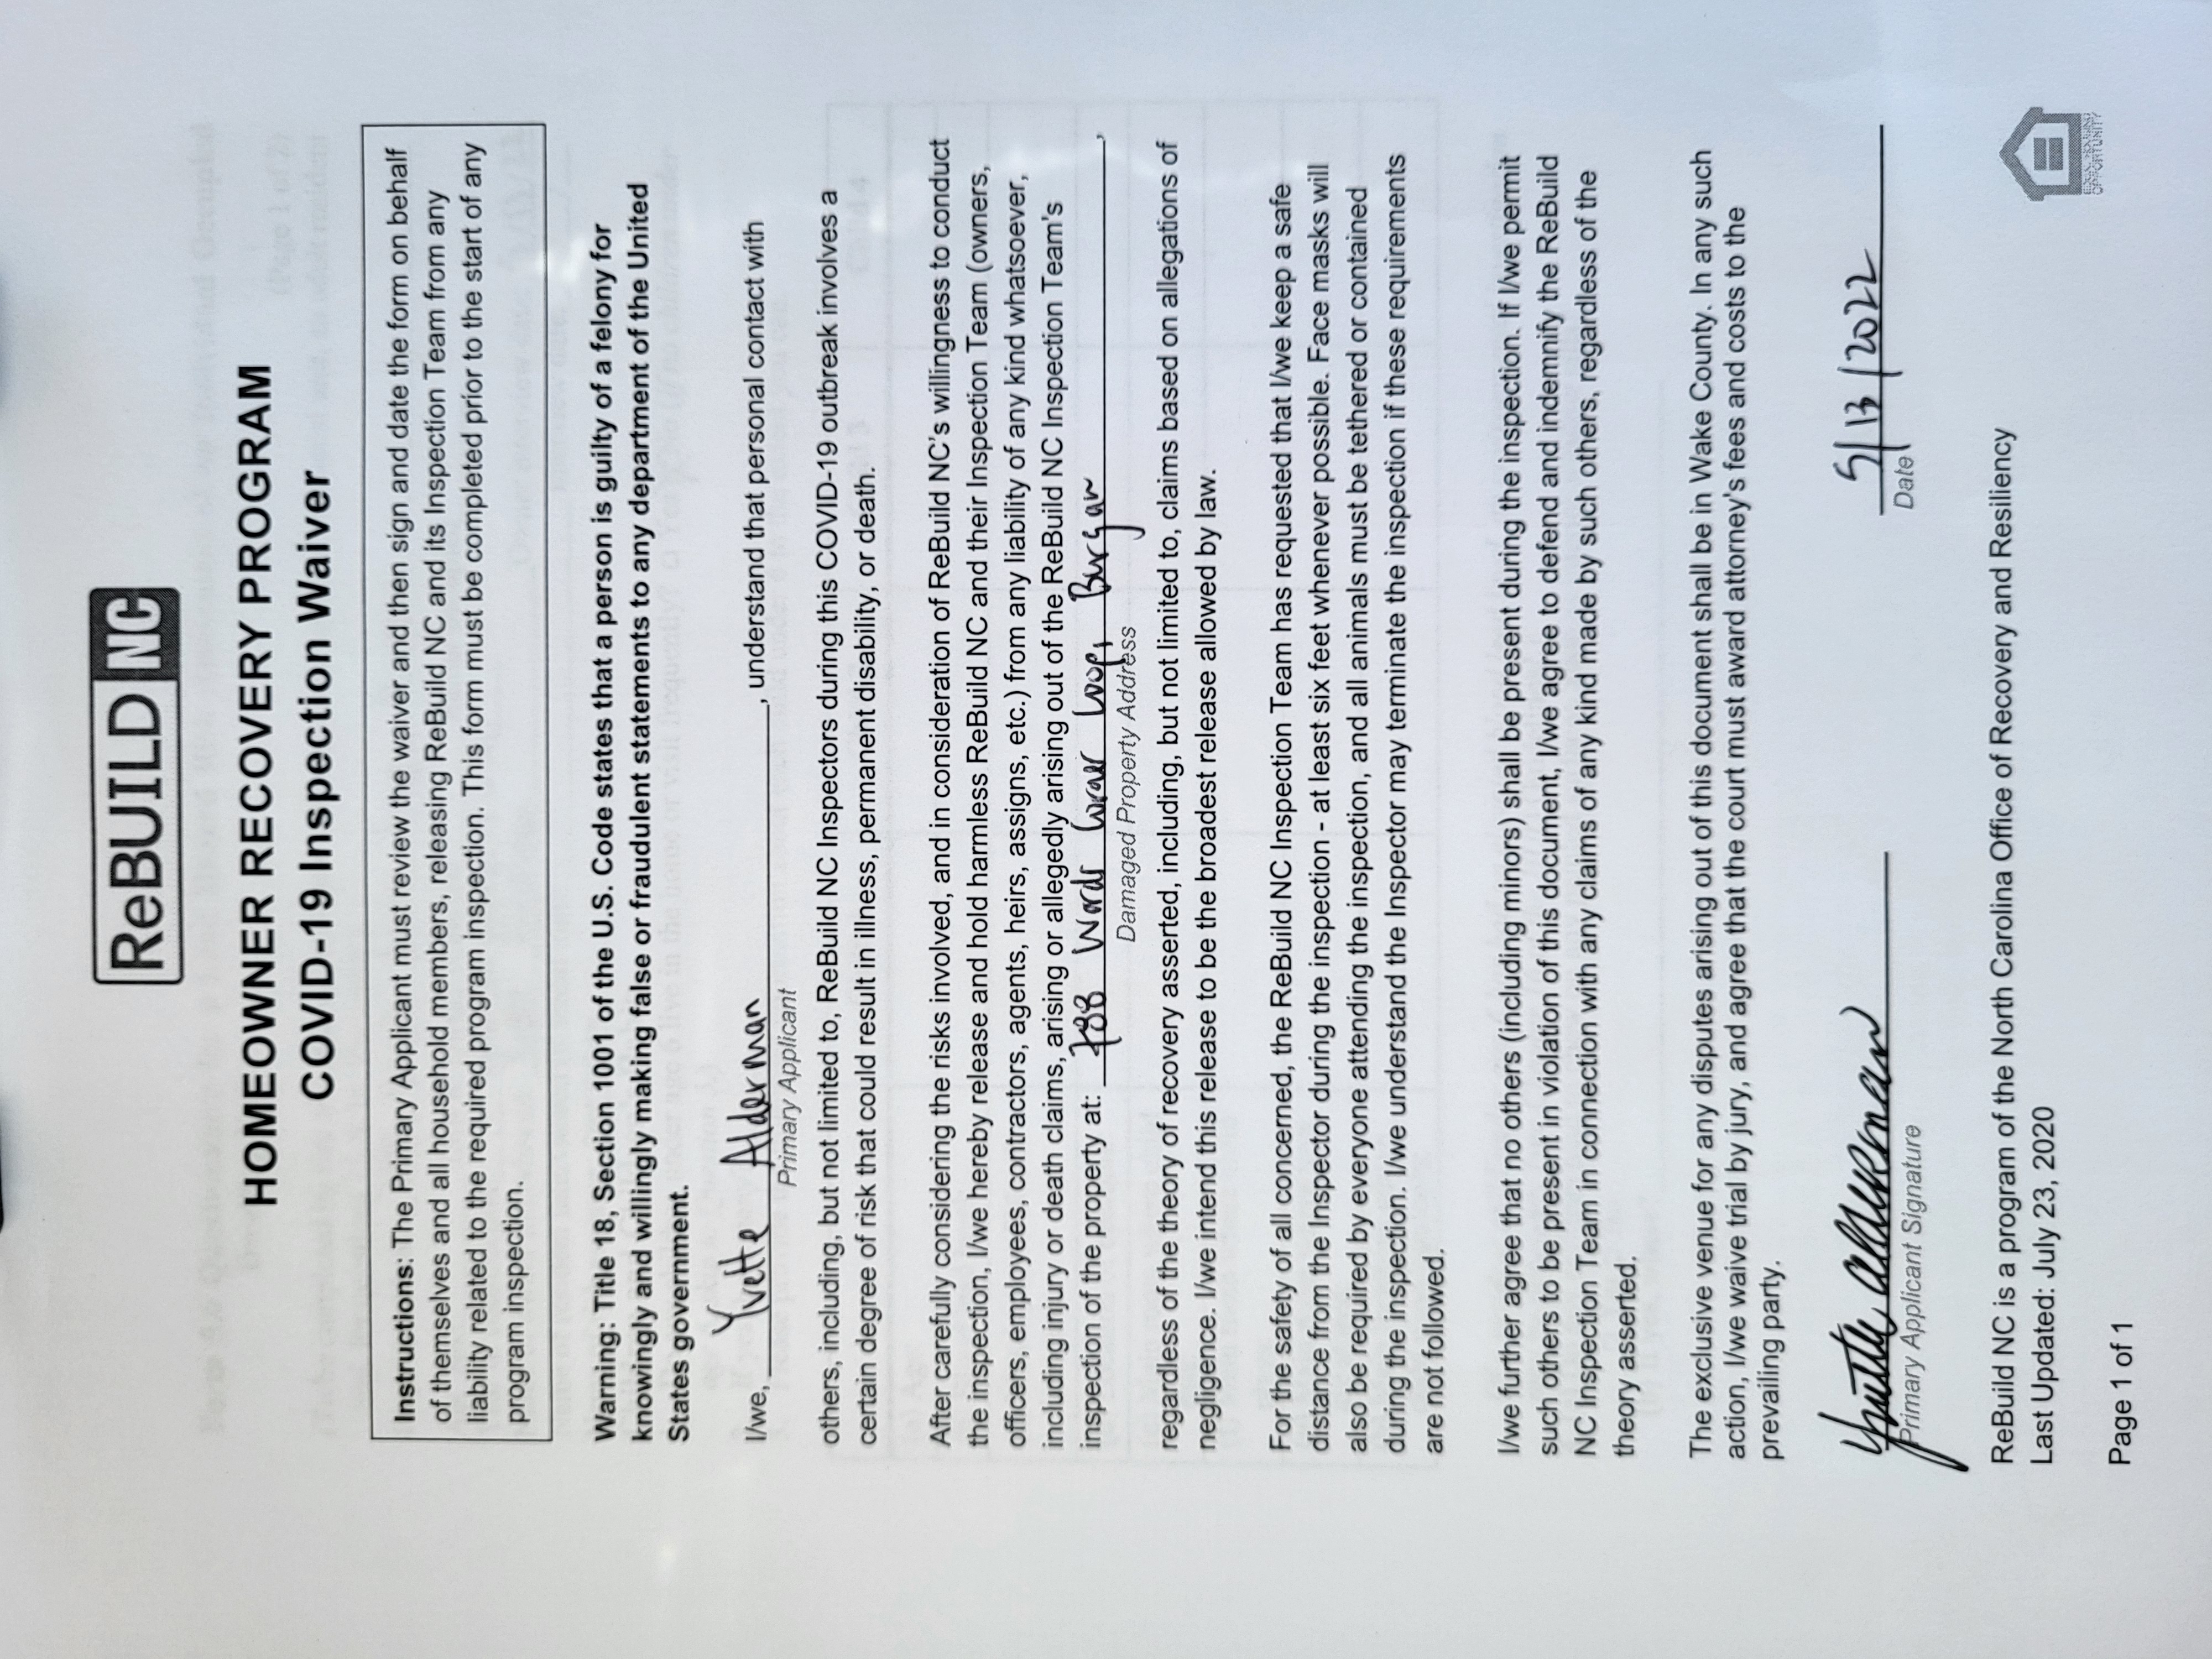 ReBUILD NC
HOMEOWNER RECOVERY PROGRAM
COVID-19 Inspection Waiver
Instructions: The Primary Applicant must review the waiver and then sign and date the form on behalf
of themselves and all household members, releasing ReBuild NC and its Inspection Team from any
liability related to the required program inspection. This form must be completed prior to the start of any
program inspection.
Warning: Title 18, Section 1001 of the U.S. Code states that a person is guilty of a felony for
knowingly and willingly making false or fraudulent statements to any department of the United
States government.
I/we, Yvette Alderman, understand that personal contact with
Primary Applicant
others, including, but not limited to, ReBuild NC Inspectors during this COVID-19 outbreak involves a
certain degree of risk that could result in illness, permanent disability, or death.
After carefully considering the risks involved, and in consideration of ReBuild NC's willingness to conduct
the inspection, I/we hereby release and hold harmless ReBuild NC and their Inspection Team (owners,
officers, employees, contractors, agents, heirs, assigns, etc.) from any liability of any kind whatsoever,
including injury or death claims, arising or allegedly arising out of the ReBuild NC Inspection Team's
inspection of the property at: 788 Wards Corner Loop, Burgaw,
Damaged Property Address
regardless of the theory of recovery asserted, including, but not limited to, claims based on allegations of
negligence. I/we intend this release to be the broadest release allowed by law.
For the safety of all concerned, the ReBuild NC Inspection Team has requested that I/we keep a safe
distance from the Inspector during the inspection - at least six feet whenever possible. Face masks will
also be required by everyone attending the inspection, and all animals must be tethered or contained
during the inspection. I/we understand the Inspector may terminate the inspection if these requirements
are not followed.
I/we further agree that no others (including minors) shall be present during the inspection. If I/we permit
such others to be present in violation of this document, I/we agree to defend and indemnify the ReBuild
NC Inspection Team in connection with any claims of any kind made by such others, regardless of the
theory asserted.
The exclusive venue for any disputes arising out of this document shall be in Wake County. In any such
action, I/we waive trial by jury, and agree that the court must award attorney's fees and costs to the
prevailing party.
Yvette Alderman 5/13/2022
Primary Applicant Signature Date
ReBuild NC is a program of the North Carolina Office of Recovery and Resiliency
Last Updated: July 23, 2020
EQUAL HOUSING
OPPORTUNITY
Page 1 of 1